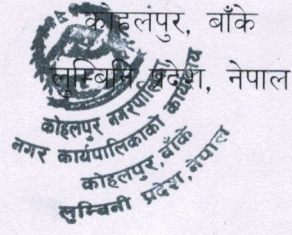 कोहलपुर, बाँके
लुम्बिनि प्रदेश, नेपाल
कोहलपुर नगरपालिका
नगर कार्यपालिकाको कार्यालय
कोहलपुर, बाँके
लुम्बिनी प्रदेश, नेपाल